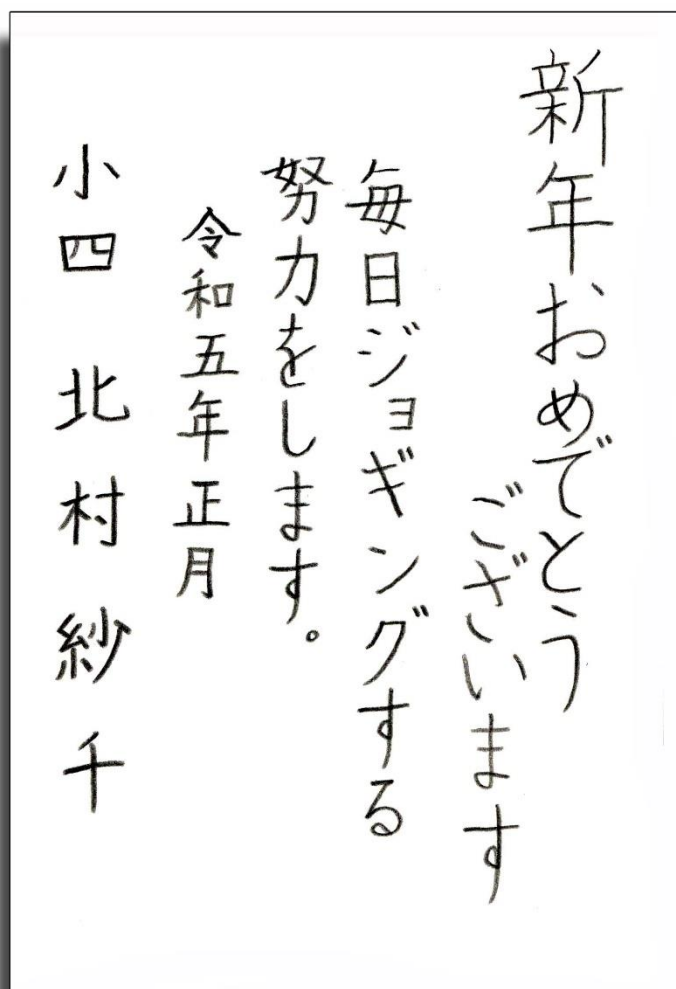 新年おめでとう
ございます
毎日ジョギングする
努力をします。
令和五年正月
小四 北村 紗千